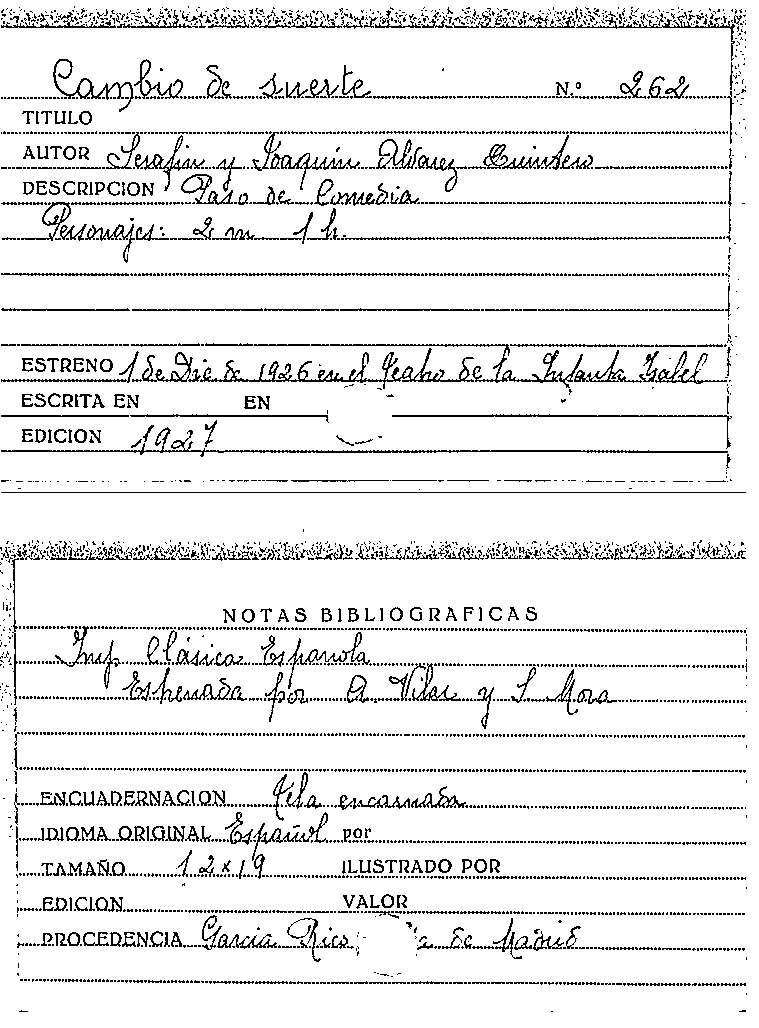 Cambio de suerte N.º 262
TITULO
AUTOR Serafin y Joaquin Alvarez Quintero
DESCRIPCION Paso de Comedia
Personajes: 2 m 1 h.
ESTRENO 1 de Dic de 1926 en el Teatro de la Infanta Isabel
ESCRITA EN EN
EDICION 1927
NOTAS BIBLIOGRAFICAS
Imp. Clásica Española
Estrenada por A. Vilar y S. Mora
ENCUADERNACION Tela encarnada
IDIOMA ORIGINAL Español por
TAMAÑO 12x19 ILUSTRADO POR
EDICION VALOR
PROCEDENCIA Garcia Rico de Madrid